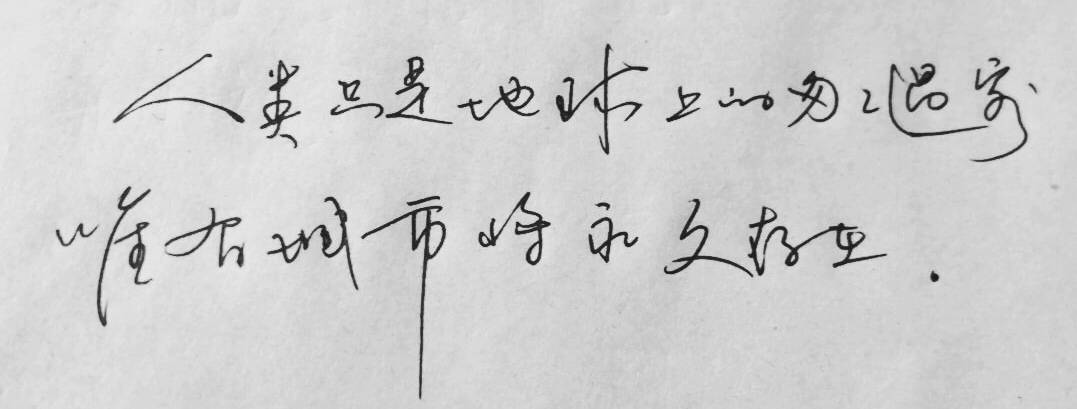 人类只是地球上的匆匆过客
唯有城市将永久存在.